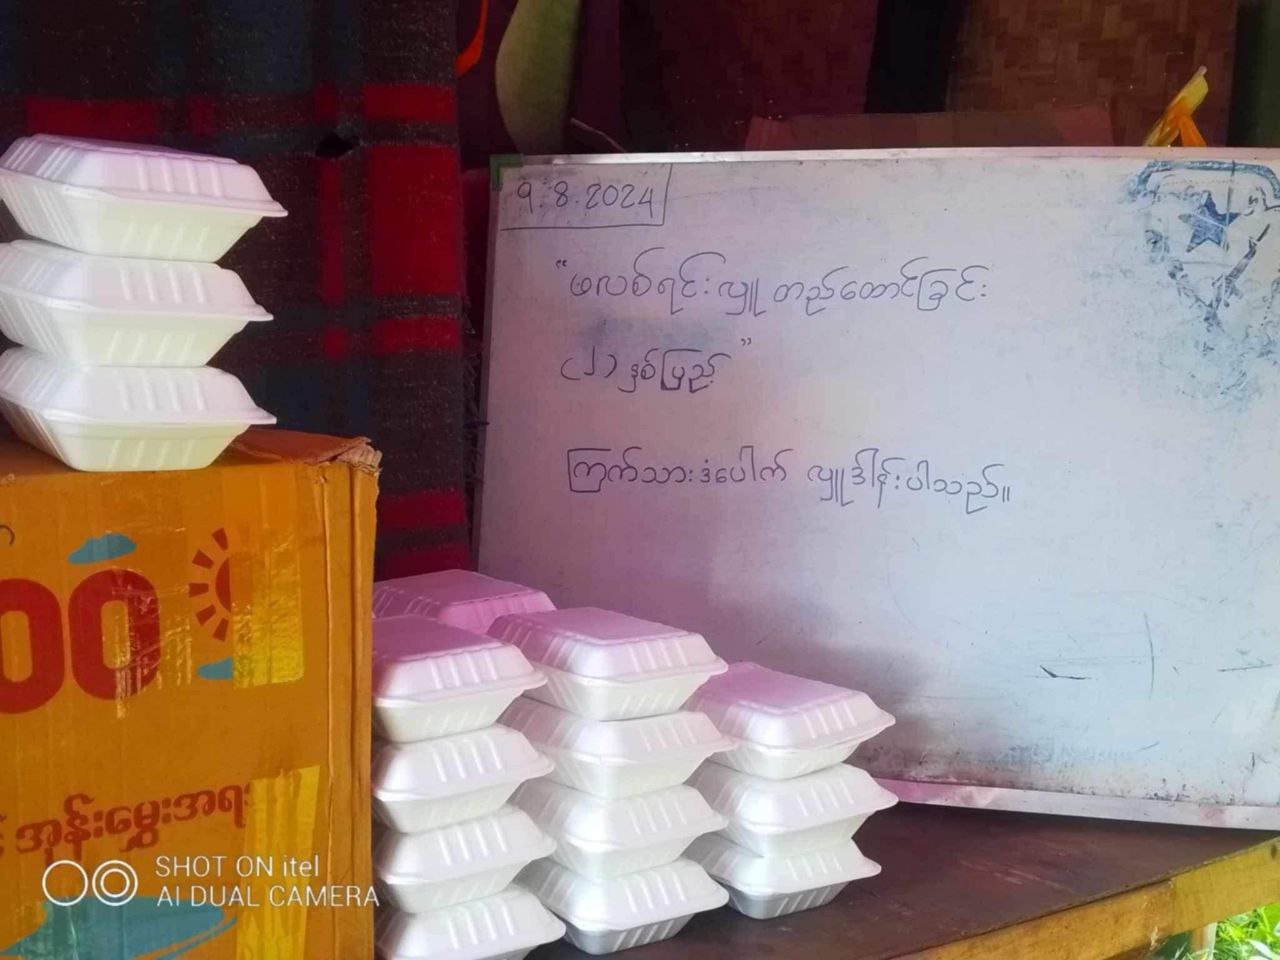 9.8.2024
“ဖလစ်ရင်းလှူ တည်ထောင်ခြင်း
(၂) နှစ်ပြည့်”
ကြက်သားဒံပေါက် လှူဒါန်းပါသည်။
အုန်းမွှေးအရ
SHOT ON itel
AI DUAL CAMERA